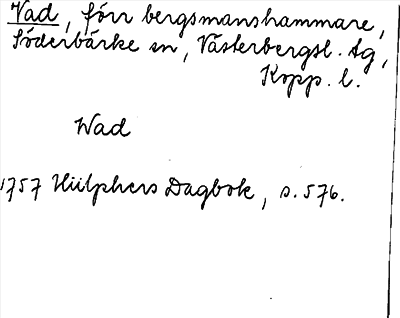 Vad, förr bergsmanshammare,
Söderbärke sn, Västerbergsl. tg,
Kopp. l.
Wad
1757 Hülphers Dagbok, s. 576.